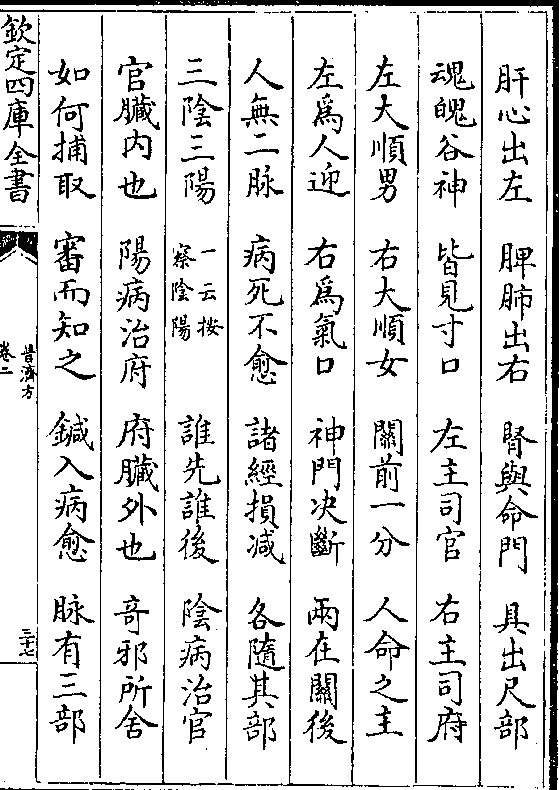 肝心出左　脾肺出右　腎與命門　具出尺部
魂魄谷神　皆見寸口　左主司官　右主司府
左大順男　右大順女　關前一分　人命之主
左爲人迎　右爲氣口　神門决斷　兩在關後
人無二脉　病死不愈　諸經損减　各隨其部
三陰三陽　一云按察陰陽　誰先誰後　陰病治官
官臟內也　陽病治府　府臟外也　奇邪所舍
如何捕取　審而知之　鍼入病愈　脉有三部
欽定四庫全書
普濟方
卷二
三十七